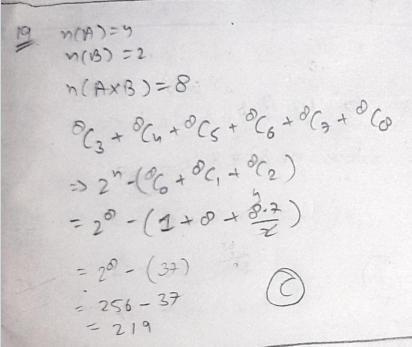 19 n(A)=4
n(B)=2
n(A×B)=8
⁸C₃ + ⁸C₄ + ⁸C₅ + ⁸C₆ + ⁸C₇ + ⁸C₈
⇒ 2ⁿ - (⁸C₀ + ⁸C₁ + ⁸C₂)
= 2⁸ - (1 + 8 + 8·7/2) 4
= 2⁸ - (37)
= 256 - 37
= 219
C